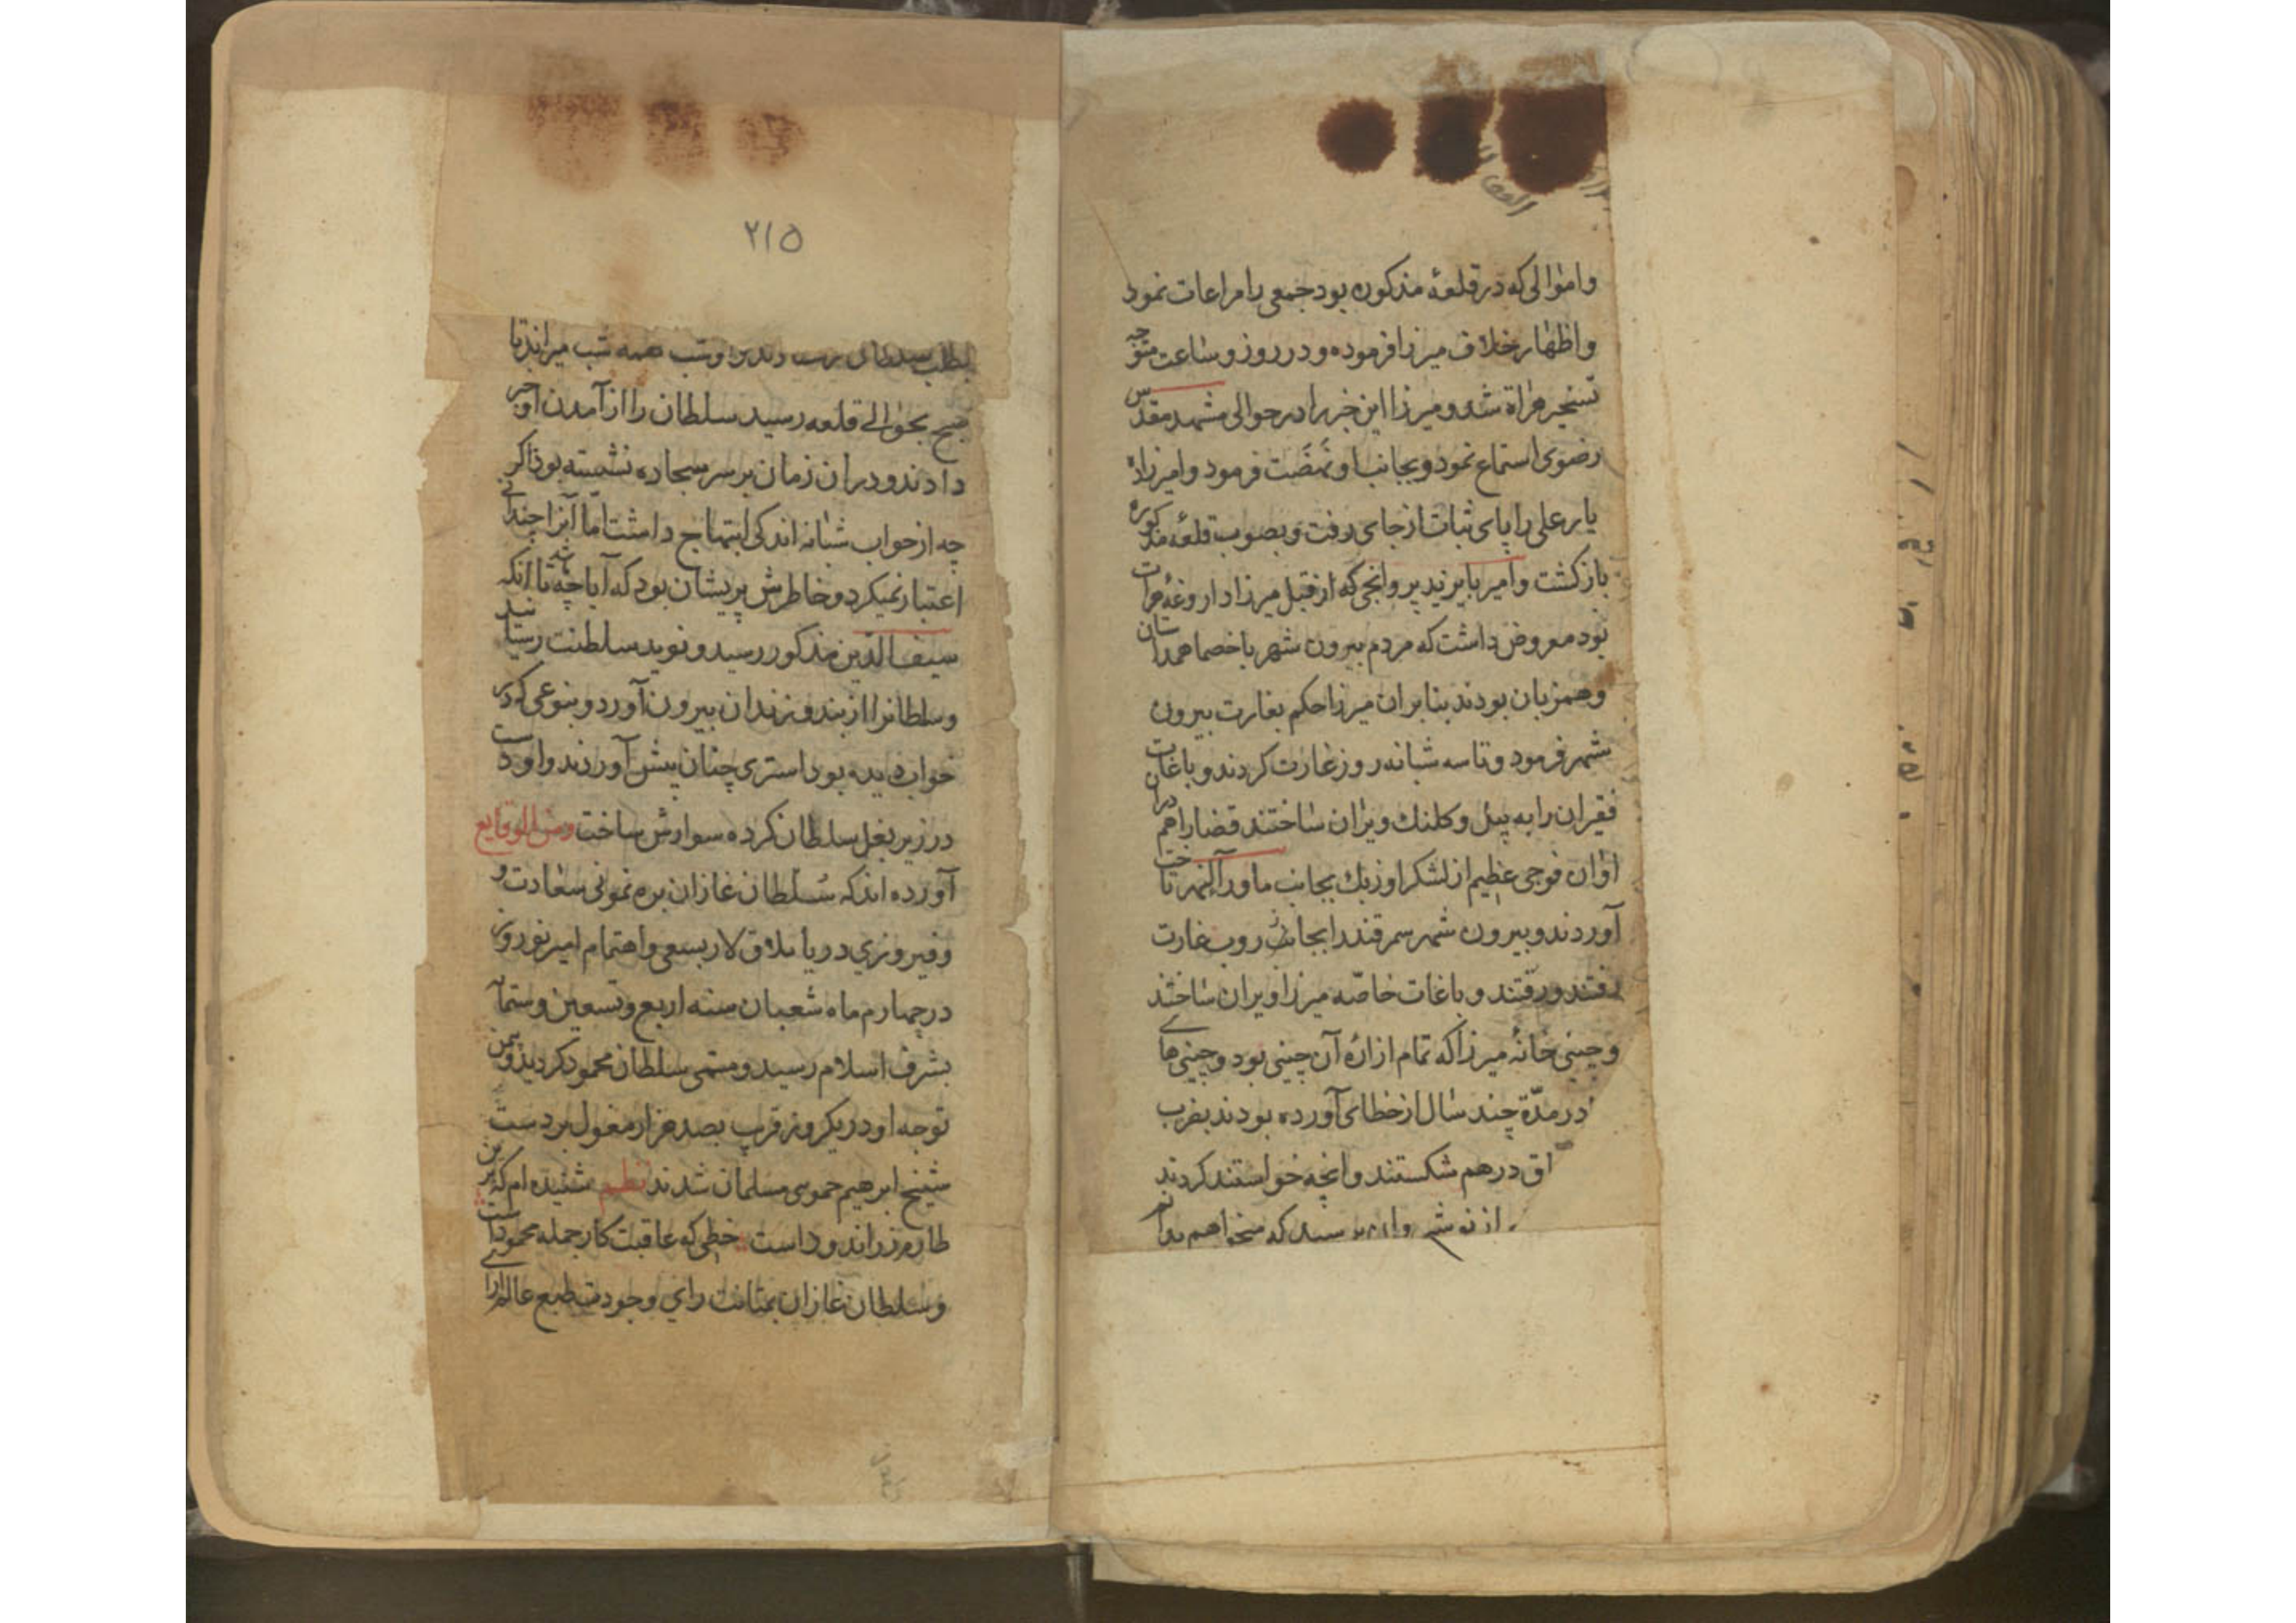 واموالی که در قلعهٔ مذکوره بود جمعی را مراعات نمود
واظهار خلاف میرزا فرموده و در روز و ساعت متوجه
تسخیر هراة شد و میرزا این خبر را در حوالی مشهد مقدس
رضوی استماع نمود و بجانب او نهضت فرمود وامیرزاه
یار علی را پای ثبات از جای رفت و بصوب قلعهٔ مذکوره
بازکشت وامیر بایزید پروانجی که از قبل میرزا داروغهٔ هرات
بود معروض داشت که مردم بیرون شهر با خصما همداستان
وهمزبان بودند بنابران میرزا حکم بغارت بیرون
شهر فرمود و تا سه شبانه روز غارت کردند و باغات
فقیران را به بیل و کلنک ویران ساختند قضا را هم دران
اوان فوجی عظیم از لشکر اوزبک بجانب ماورآالنهر تاخت
آوردند و بیرون شهر سمرقند را بجاروب غارت
رفتند و رفتند و باغات خاصّه میرزا ویران ساختند
و چینی خانهٔ میرزا که تمام ازارهٔ آن چینی بود و چینی های
در مدّة چند سال از خطای آورده بودند بضرب
اق درهم شکستند وانچه خواستند کردند
از نوشیروان پرسید که میخواهم بدانم
۲۱۵
همه شب میراند تا
صبح بحوالی قلعه رسید سلطان را از آمدن او خبر
دادند و دران زمان بر سر سجاده نشسته بود ذاکر
چه از خواب شبانه اندکی ابتهاج داشت امّا آنرا چندانی
اعتبار نمیکرد و خاطرش پریشان بود که آیا چه باشد تا آنکه
سیف الدین مذکور رسید و نوید سلطنت رسانید
و سلطانرا از بند و زندان بیرون آورد و بنوعی که در
خواب دیده بود استری چنان پیش آوردند و او دست
در زیر بغل سلطان کرده سوارش ساخت ومن الوقایع
آورده اند که سُلطان غازان بره نمونی سعادت و
و فیروزی در یایلاق لار بسعی و اهتمام امیر نوروز
در چهارم ماه شعبان سنه اربع و تسعین و ستمآ
بشرف اسلام رسید و مسمّی سلطان محمود کردید و بیمن
توجه او در یکروز قرب بصد هزار مغول بر دست
شیخ ابرهیم حموی مسلمان شدند نظم شنیده ام که برین
طارم زر اندود است خطی که عاقبت کار جمله محمود است
و سلطان غازان بمتانت رای و جودت طبع عالم آرای